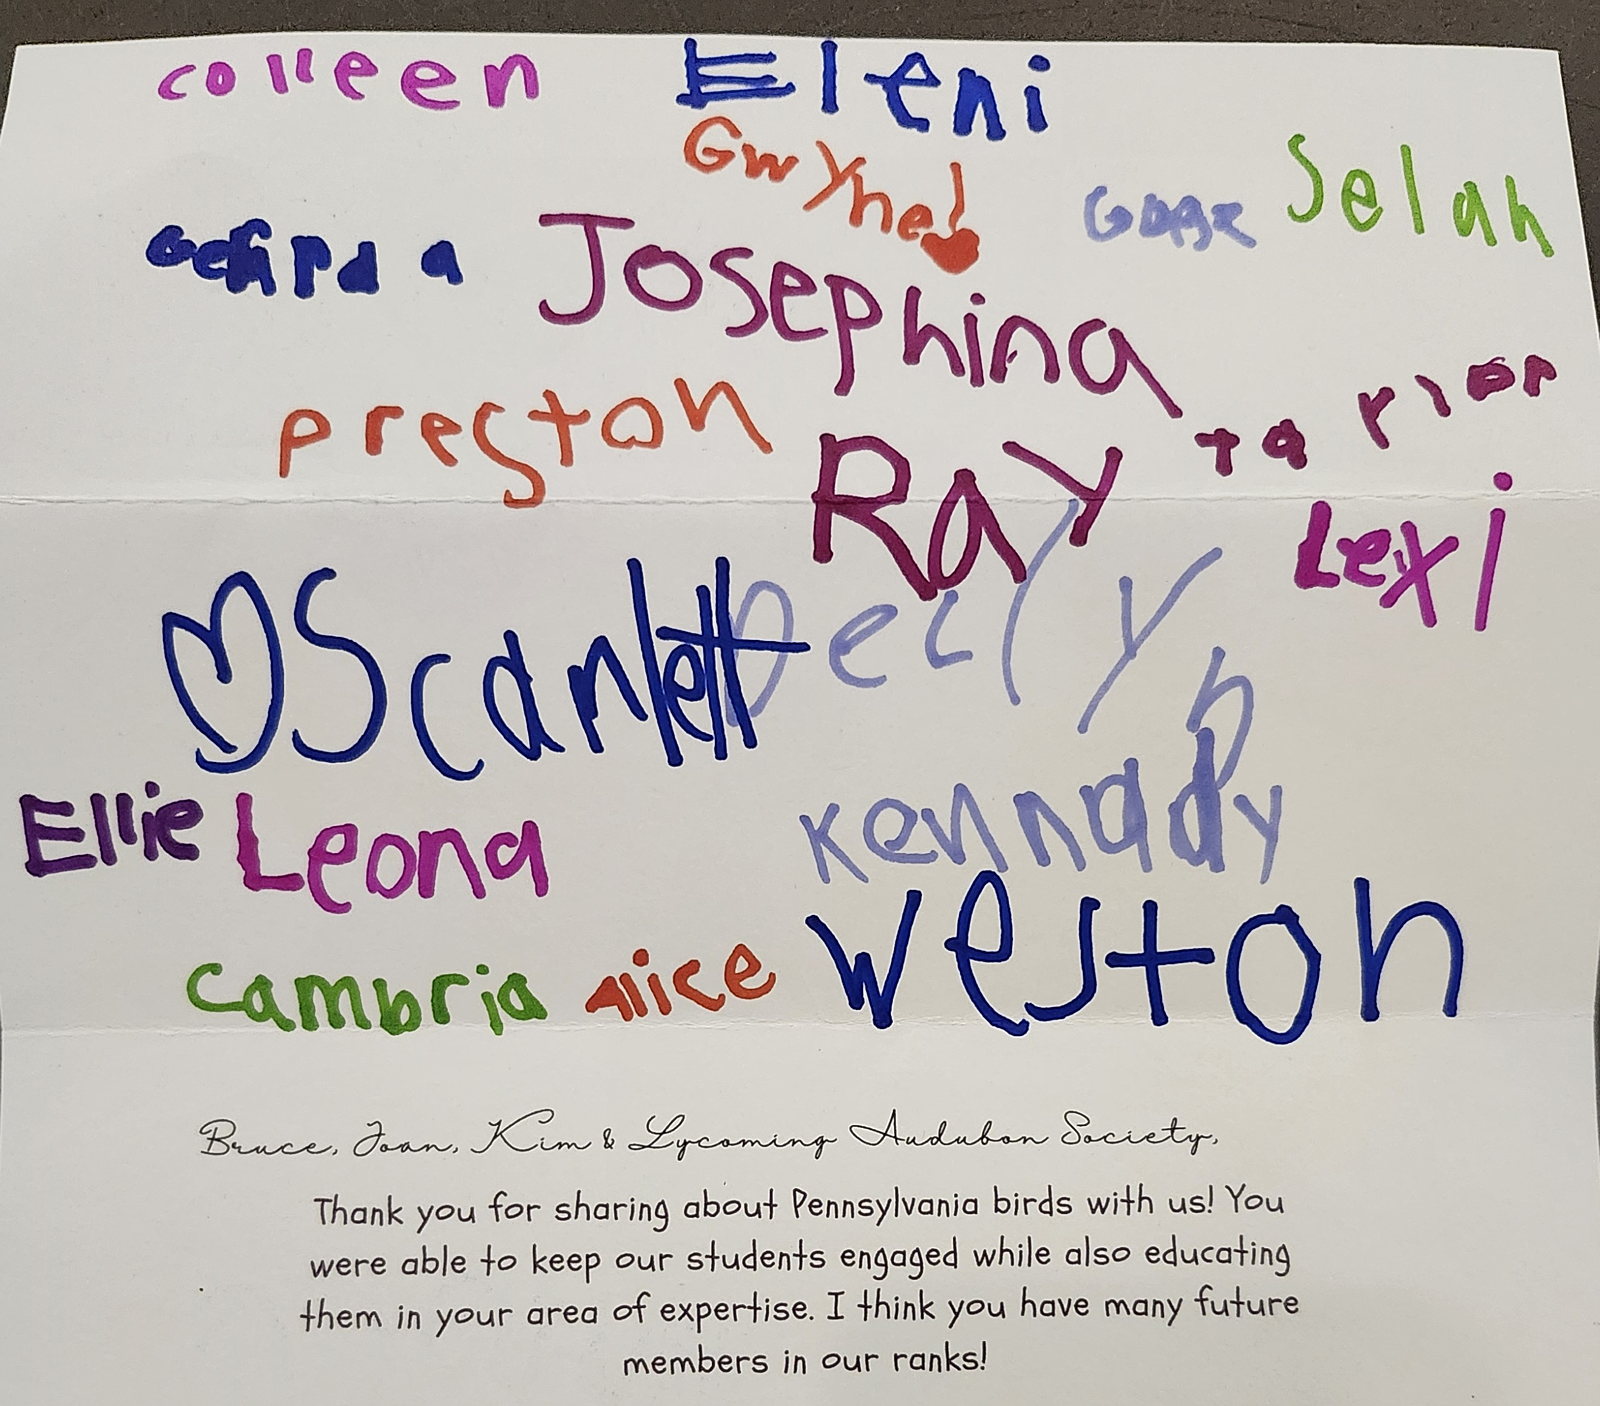 colleen Eleni
Gwyne!
Selah
Josephina
preston
Ray
Lexi
Scarlett
Ellie Leona Kennady
Cambria Alice Weston
Bruce, Joan, Kim & Lycoming Audubon Society,
Thank you for sharing about Pennsylvania birds with us! You
were able to keep our students engaged while also educating
them in your area of expertise. I think you have many future
members in our ranks!